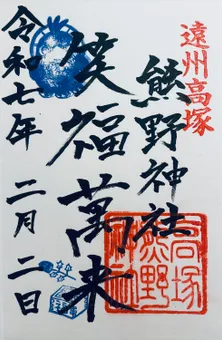 遠州高塚
熊野神社
笑福萬来
令和七年 二月二日
高塚
熊野
神社